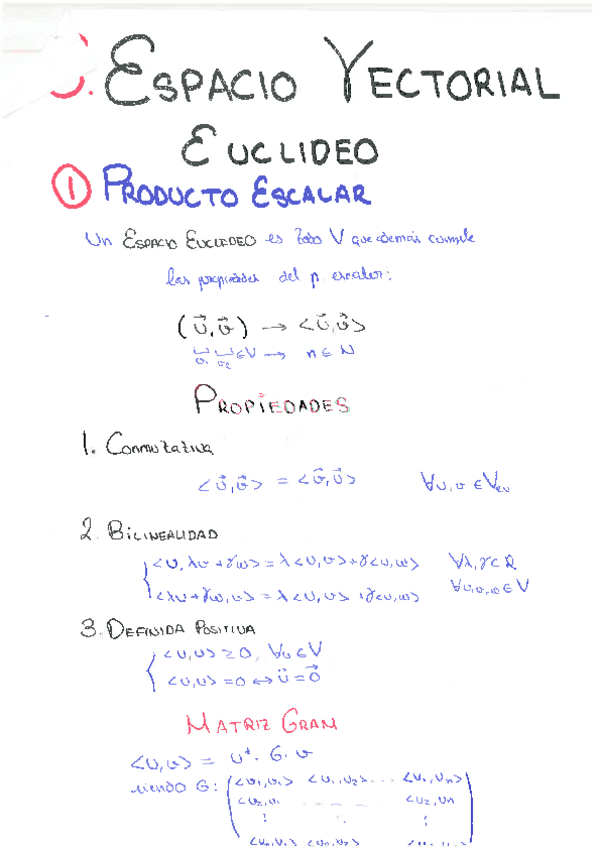 5. ESPACIO VECTORIAL
EUCLIDEO
① PRODUCTO ESCALAR
Un ESPACIO EUCLIDEO es todo V que además cumple
las propiedades del p. escalar:
(ū⃗, v⃗) → <u⃗, v⃗>
v₁ v₂ ∈ V → n ∈ N
PROPIEDADES
1. Conmutativa
<u⃗, v⃗> = <v⃗, u⃗> ∀u, v ∈ Veu
2. BILINEALIDAD
<u, λv + γw> = λ<u, v> + γ<u, w> ∀λ, γ ∈ R
<λu + γw, v> = λ<u, v> + γ<v, w> ∀u, v, w ∈ V
3. DEFINIDA POSITIVA
<u, u> ≥ 0, ∀u ∈ V
<u, u> = 0 ↔ u⃗ = 0⃗
MATRIZ GRAM
<u, v> = uᵗ · G · v
siendo G: (<v₁, v₁> <v₁, v₂> ... <v₁, vₙ>
<v₂, v₁ ... <v₂, vₙ
<vₙ, v₁> <vₙ, v₂>